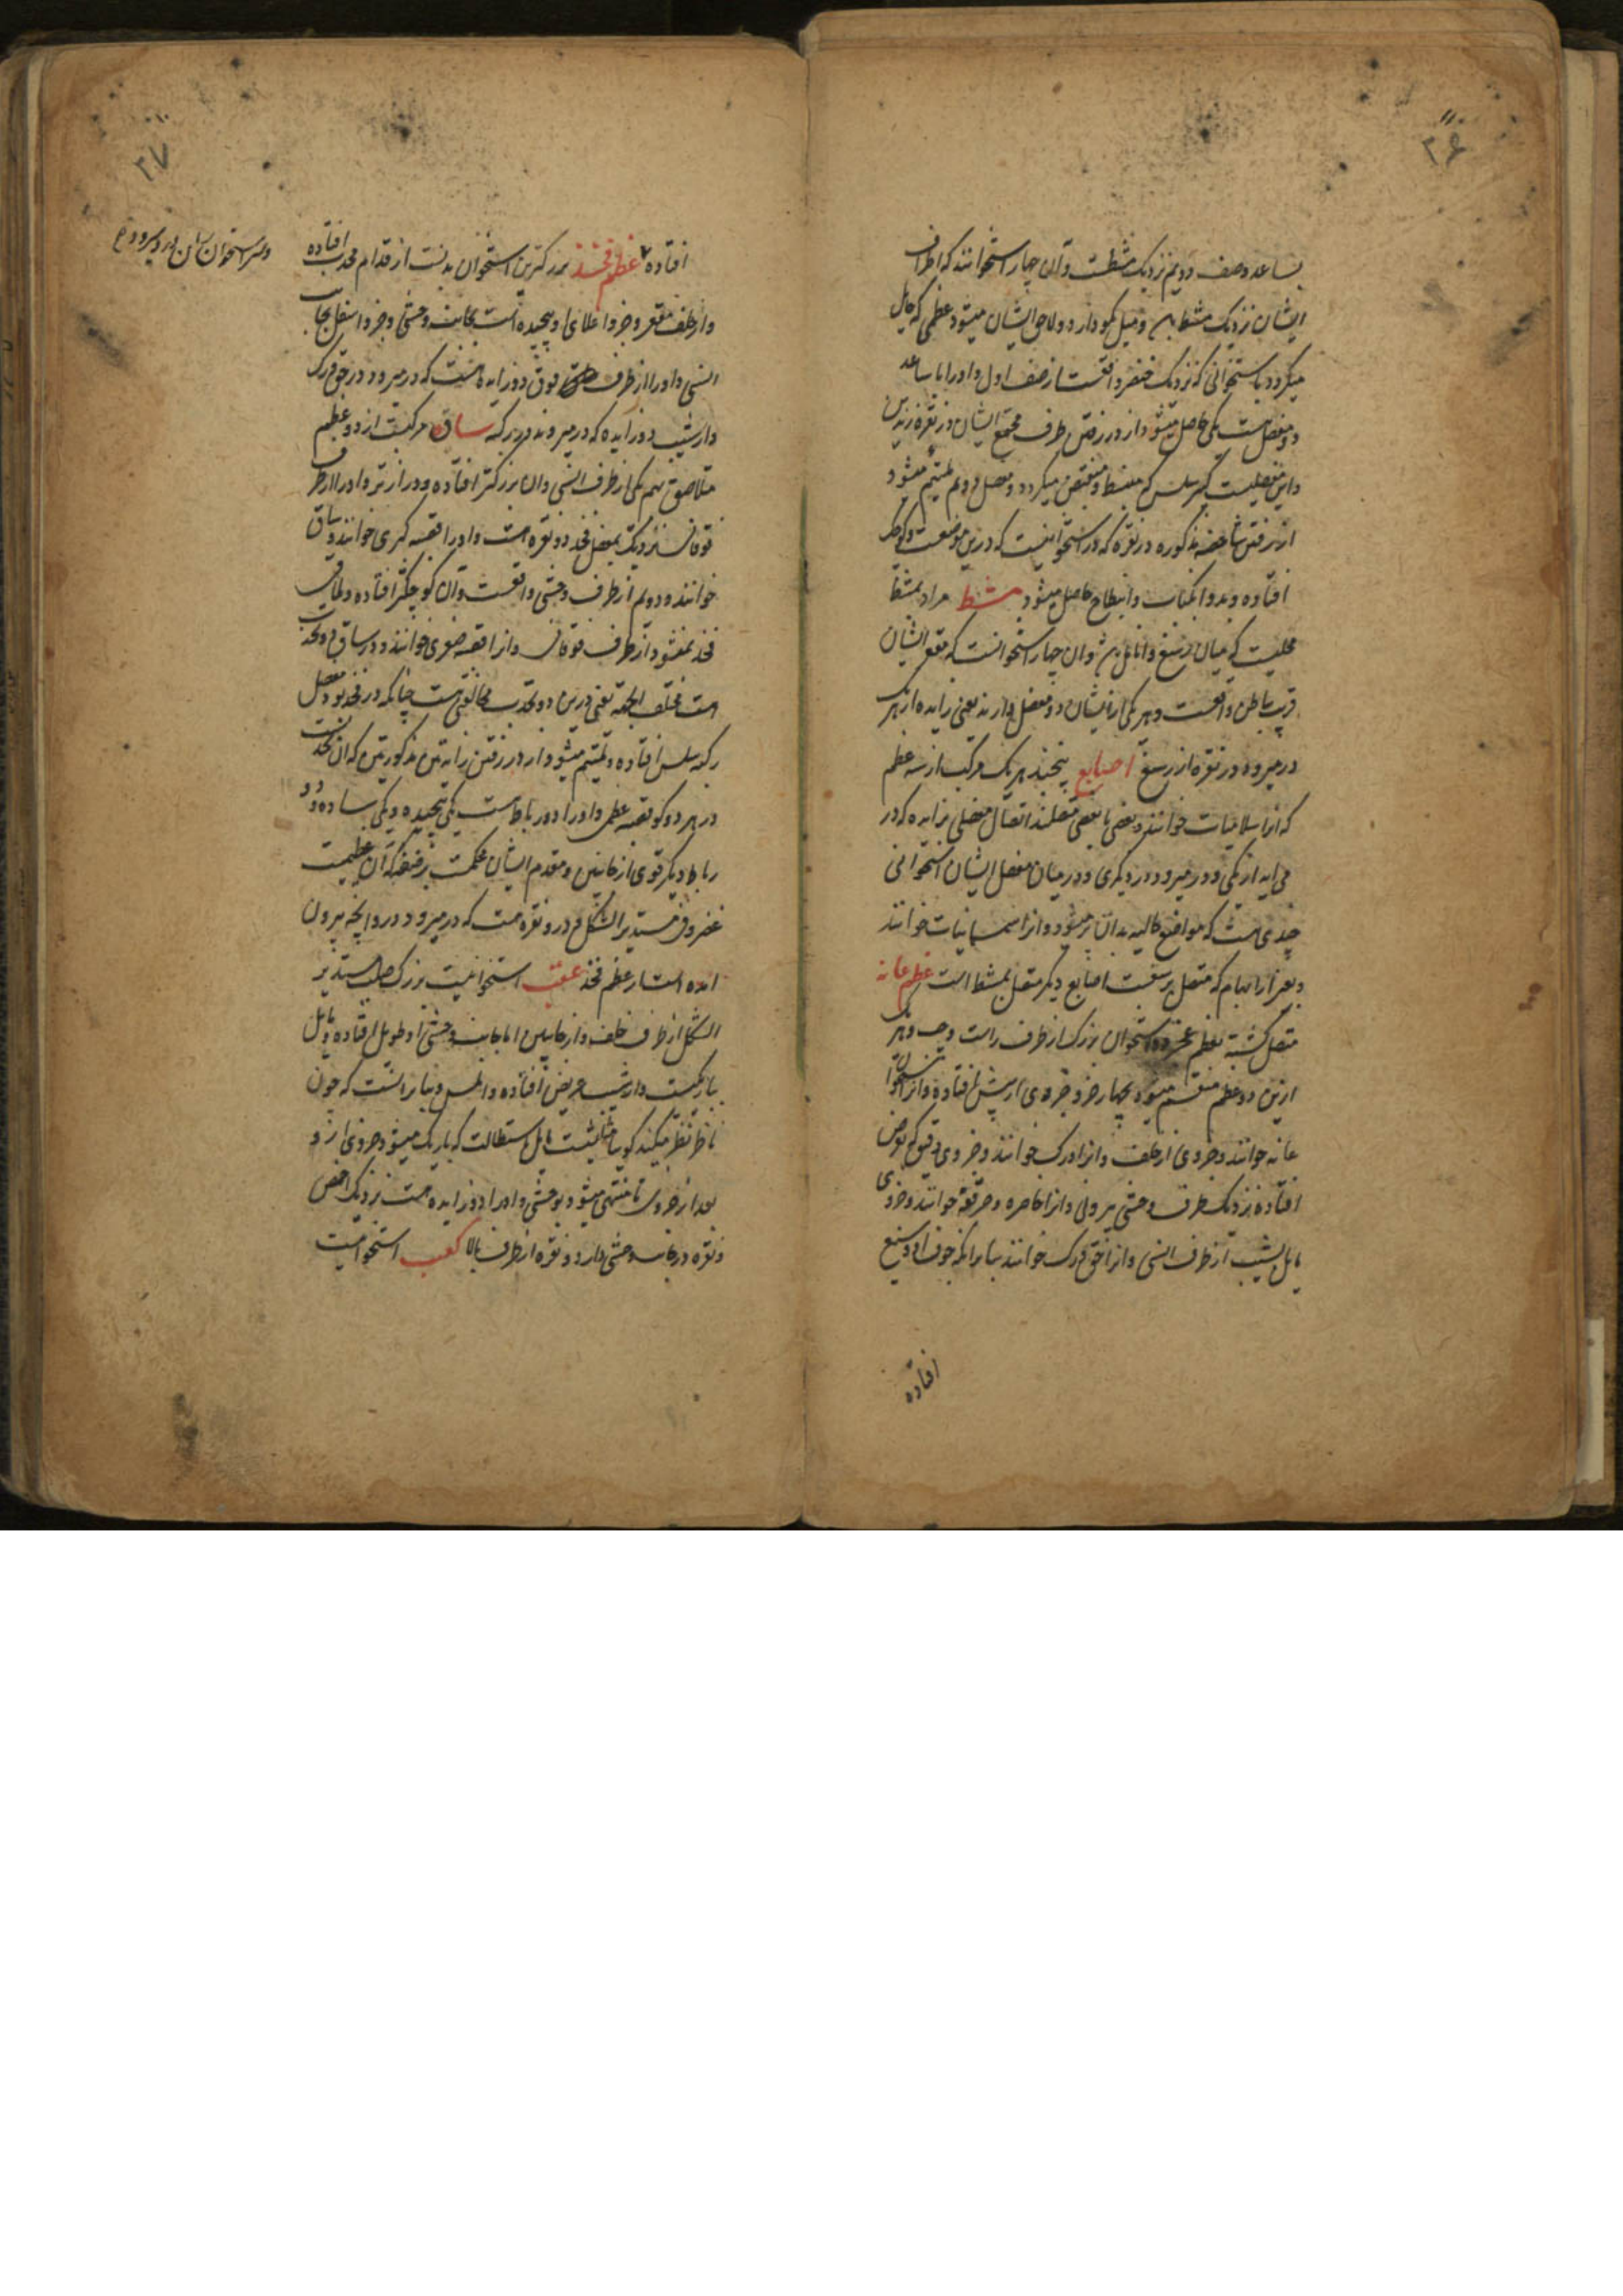 ۲۶
بساعد وصف دویم نزدیک مشطست وآن چهار استخوانند که اطراف
ایشان نزدیک مشط و میل دارد و لاحق ایشان میشود عظمی که مایل
میگردد باستخوانی که نزدیک خنصر واقعست از صف اول و او را با ساعد
دو مفصل است یکی حاصل میشود از در رفتن طرف مجتمع ایشان در نقره زندین
و این مفصلیست سلس که منبسط و منقبض میگردد و مفصل دویم ملتئم میشود
از در رفتن شاخصه مذکوره در نقره که در استخوانیست که درین موضعست کوچک
افتاده و بدو انکباب و انبطاح حاصل میشود مشط مراد بمشط
محلیست که میان رسغ و انامل و آن چهار استخوانست که مقعر ایشان
قریب بباطن واقعست و هر یکی از ایشان دو مفصل دارند یعنی زایده از هر یک
در میرود در نقره از رسغ اصابع پنجند هر یک مرکب از سه عظم
که آنرا سلامیات خوانند و بعضی با بعضی متصلند اتصال مفصلی بزایده که در
می آید از یکی و در میرود در دیگری و در میان مفصل ایشان استخوانی
چندی هست که مواضع خالیه بدان پر میشود و آنرا سمسانیات خوانند
و بغیر از ابهام که متصل برسغست اصابع دیگر متصل بمشط است عظم عانه
متصل گشته بعظم عجز دو استخوان بزرگ از طرف راست و چپ و هر یک
ازین دو عظم منقسم میشود بچهار جزو جزوی از پیش افتاده و آنرا استخوان
عانه خوانند و جزوی از خلف و آنرا ورک خوانند و جزوی دقیق که بعرض
افتاده نزدیک طرف وحشی بیرونی و آنرا خاصره و حرقفه خوانند و جزوی
مایل بشیب از طرف انسی و آنرا حق ورک خوانند بنا برآنکه جوف او وسیع
افتاده
۲۷
افتاده عظم فخذ بزرگترین استخوان بدنست از قدام محدب افتاده
و از خلف مقعر و جزو اعلای او پیچیده است بجانب وحشی و جزو اسفل بجانب
انسی و او را از طرف فوق دو زایده هست که در میرود در حق ورک
و از شیب دو زایده که در میروند در رکبه ساق مرکبست از دو عظم
متلاصق بهم یکی از طرف انسی و آن بزرگتر افتاده و درازتر و او را از طرف
فوقانی نزدیک بمفصل فخذ دو نقره هست و او را قصبه کبری خوانند و ساق
خوانند و دویم از طرف وحشی واقعست و آن کوچکتر افتاده و ملاقی
فخذ نمیشود از طرف فوقانی و آنرا قصبه صغری خوانند و در ساق دو تحدب
هست مختلف الجهه یعنی درین دو تحدب مخالفتی هست چنانکه در فخذ بود و مفصل
رکبه سلس افتاده و ملتئم میشود از در رفتن زایدتین مذکورتین که آن فخذست
در هر دو گو قصبه عظمی و او را دو رباط است یکی پیچیده و یکی ساده و دو
رباط دیگر قوی از جانبین و مقدم ایشان محکمست برضفه که آن عظیمست
غضروفی مستدیر الشکل و درو نقره هست که در میرود درو آنچه بیرون
آمده است از عظم فخذ عقب استخوانیست بزرگ صلب مستدیر
الشکل از طرف خلف و از جانبین اما بجانب وحشی او طویل افتاده و مایل
بباریکیست و از شیب عریض افتاده و املس و بنا برآنست که چون
ناظر نظر میکند گویا مثلثیست مایل باستطالت که باریک میشود جزوی ازو
بعد از جزوی تا منتهی میشود بوحشی و او را دو زایده هست نزدیک اخمص
و نقره در جانب وحشی دارد و نقره از طرف بالا کعب استخوانیست